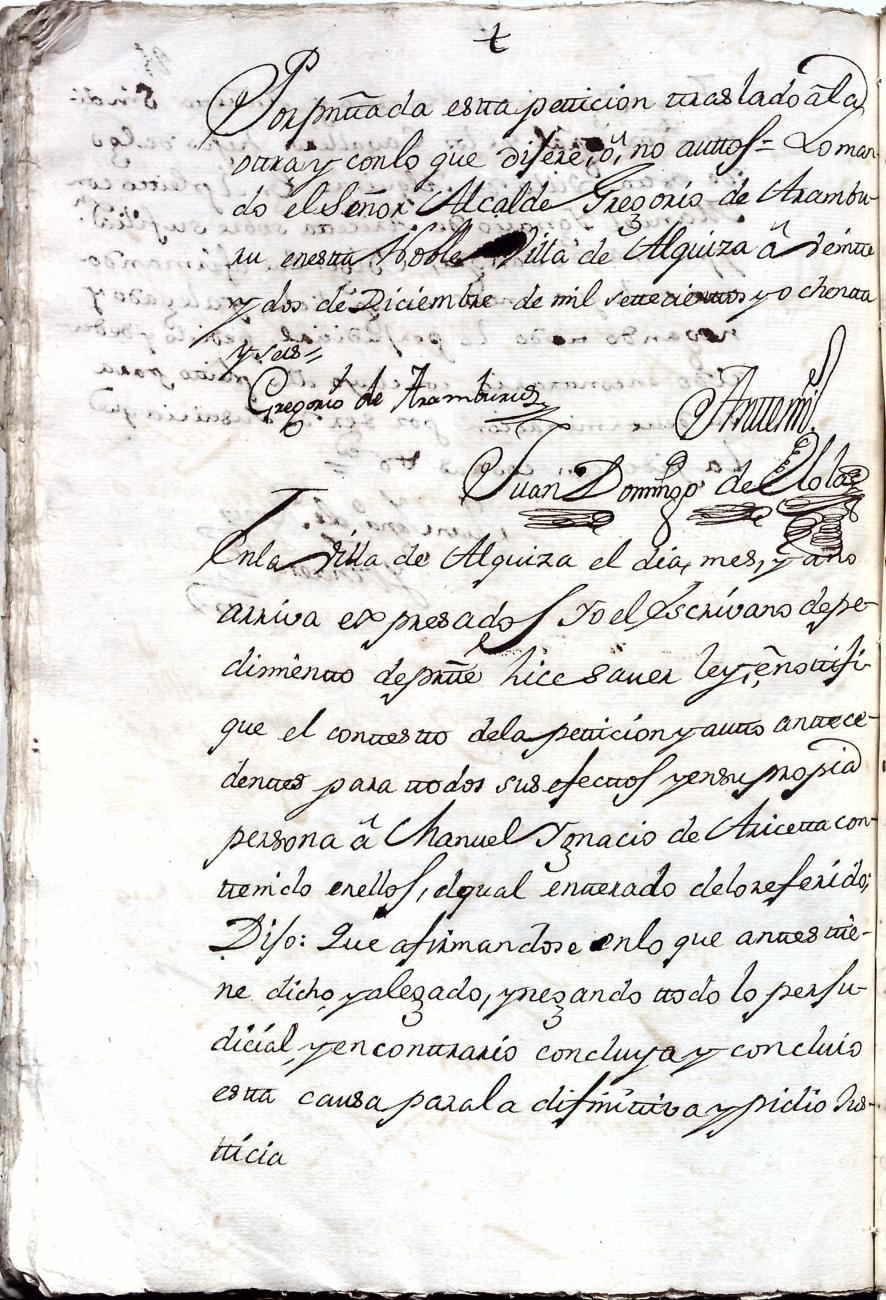 t
Por pnttada estta pettición ttraslado â la
ottra y con lo que dijere, ô, no auttos = Lo man-
do el Señor Alcalde Gregorio de Arambu-
ru en estta Noble Villa de Alquiza â veintte
y dos de Diciembre de mil settecienttos y ochentta
y seis=
Gregorio de Aramburu
Antte mi
Juan Domingo de Elola
En la Villa de Alquiza el dia, mes, y año
arriva expresados Yo el Escrivano de pe-
dimientto de pntte hice saver ley, ê nottifi-
que el conttestto de la petticion y autto anttece-
denttes para ttodos sus efecttos y en su propia
persona â Manuel Ygnacio de Aricetta con-
ttenido en ellos, el qual entterado de lo referido;
Dijo: Que afirmandose en lo que anttes ttie-
ne dicho, y alegado, y negando ttodo lo perju-
dicial y en conttrario concluya y concluio
estta causa para la difinittiva y pidio Jus-
tticia